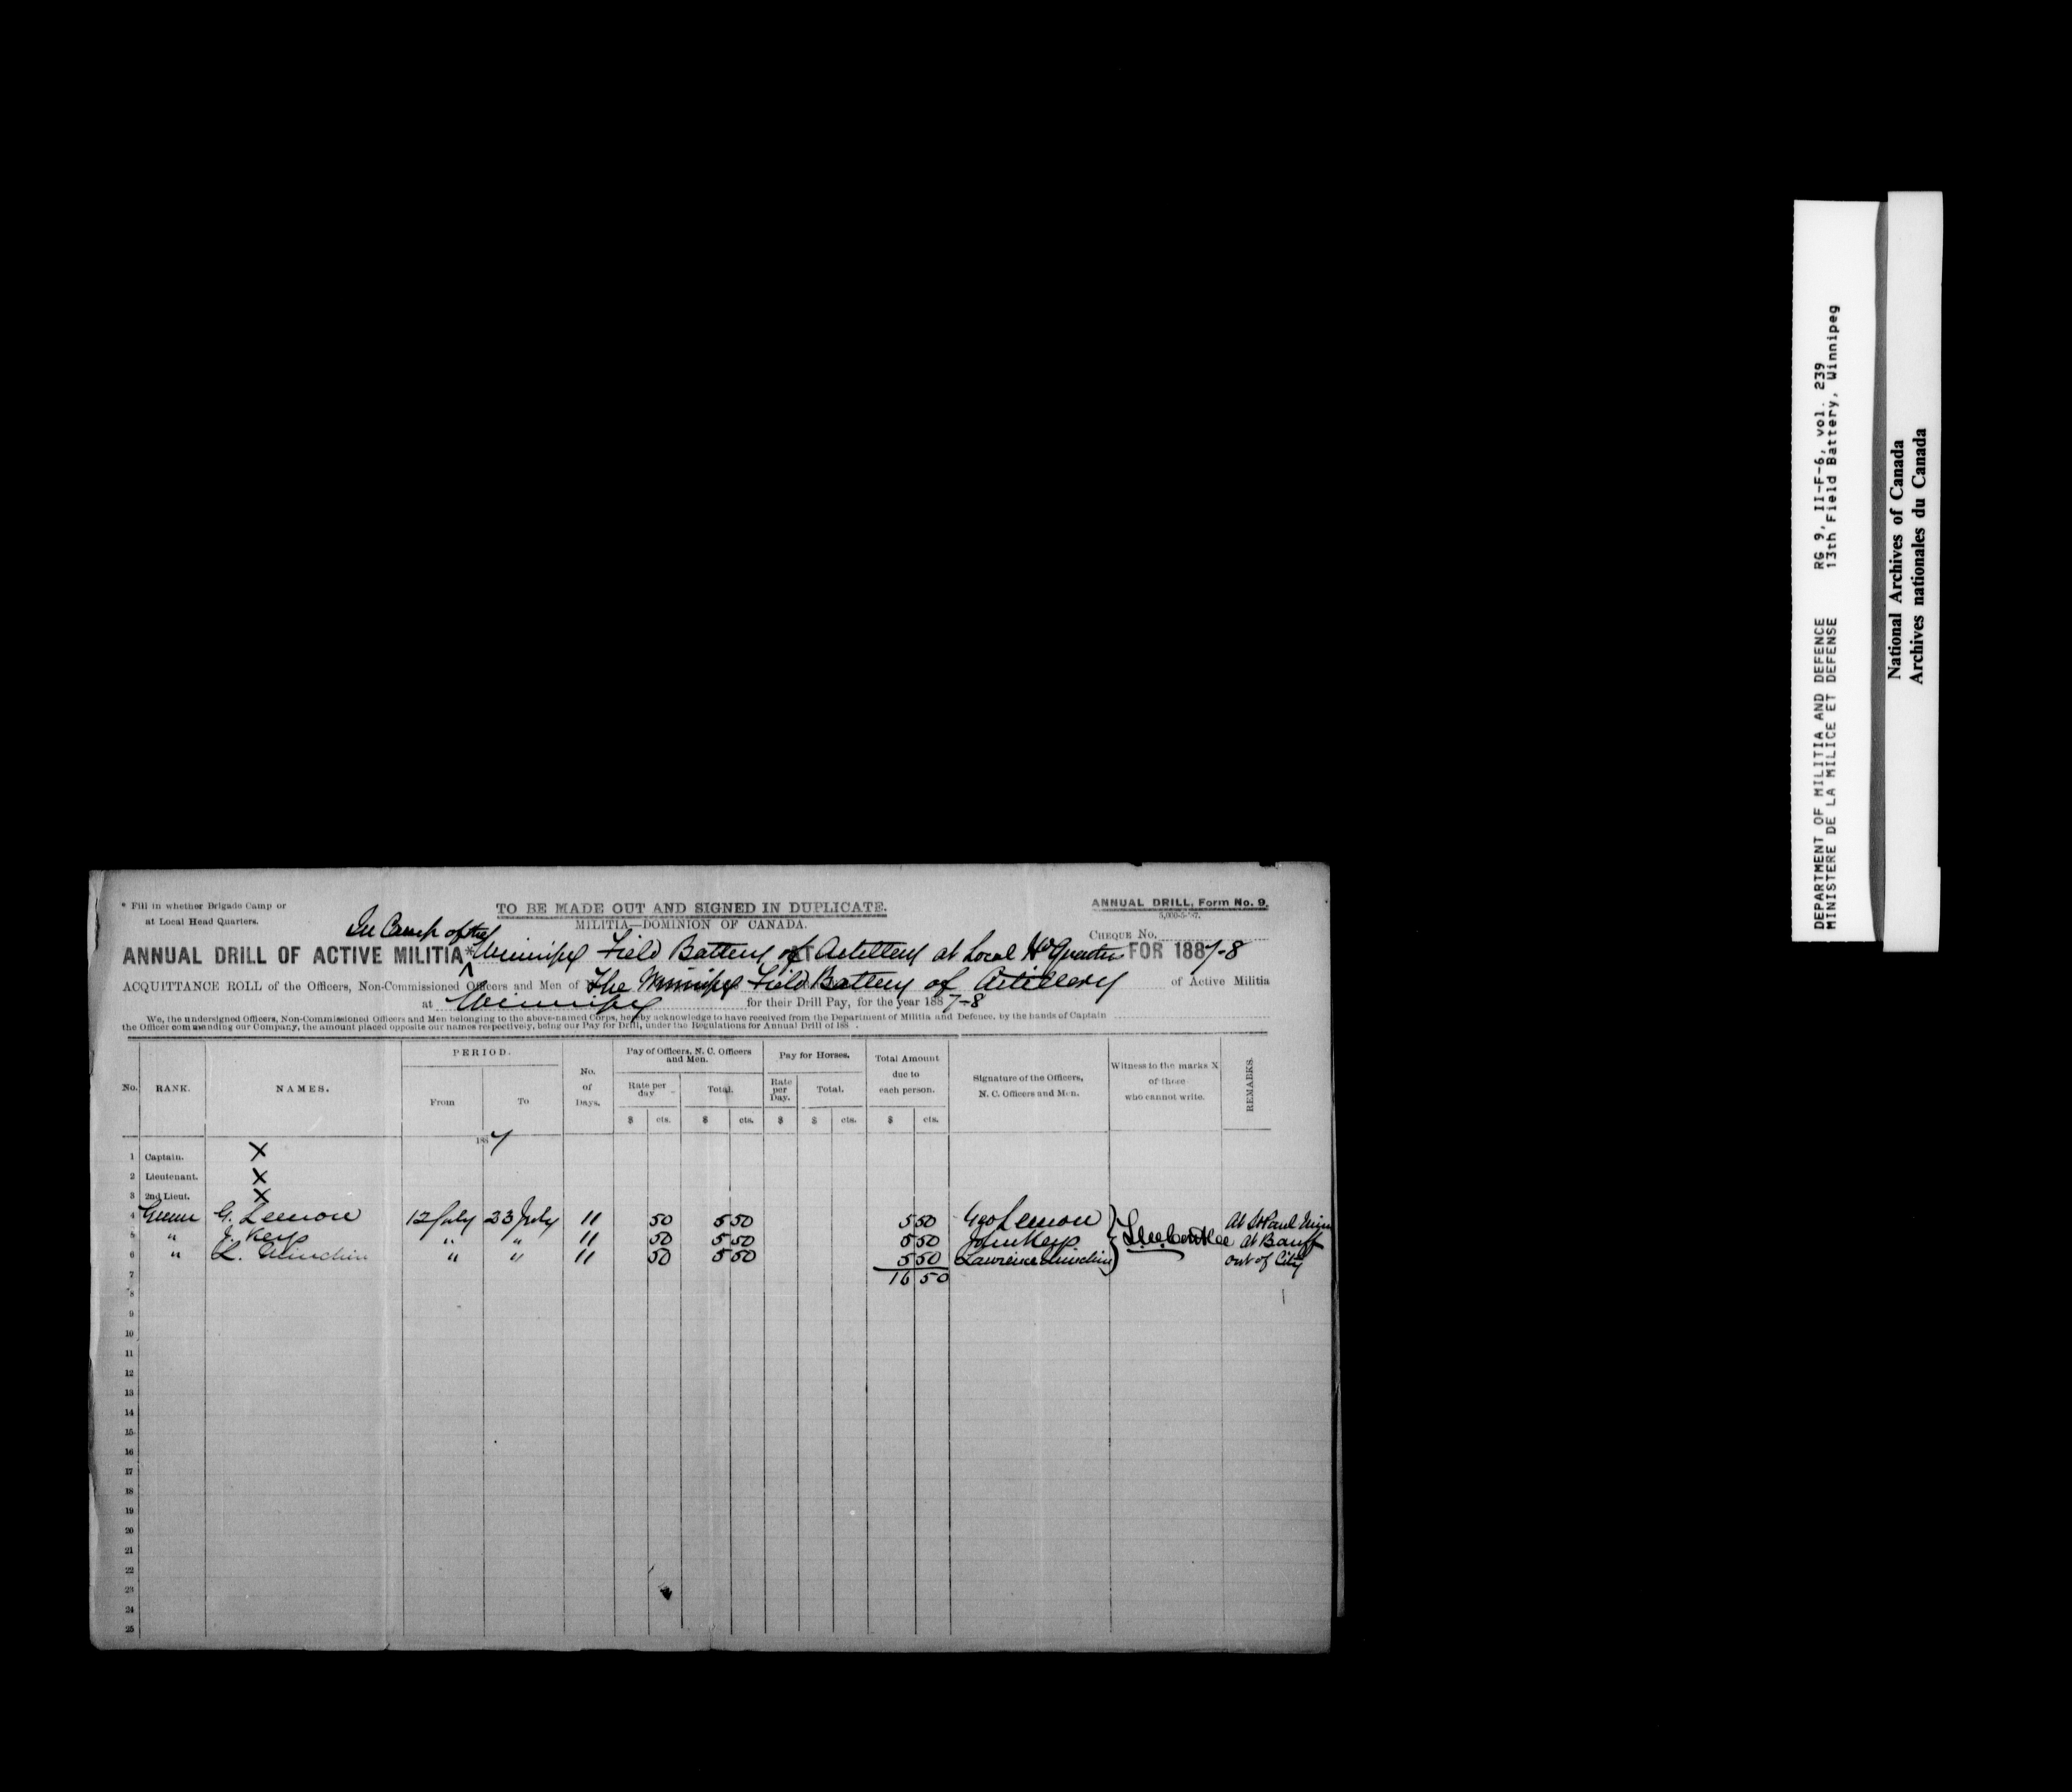 * Fill in whether Brigade Camp or
at Local Head Quarters.
TO BE MADE OUT AND SIGNED IN DUPLICATE.
MILITIA—DOMINION OF CANADA.
ANNUAL DRILL, Form No. 9.
CHEQUE No.
In Camp of the
ANNUAL DRILL OF ACTIVE MILITIA * Winnipeg Field Battery of Artillery at Local Hd Quarters FOR 1887-8
ACQUITTANCE ROLL of the Officers, Non-Commissioned Officers and Men of The Winnipeg Field Battery of Artillery of Active Militia
at Winnipeg for their Drill Pay, for the year 1887-8
We, the undersigned Officers, Non-Commissioned Officers and Men belonging to the above-named Corps, hereby acknowledge to have received from the Department of Militia and Defence, by the hands of Captain
the Officer commanding our Company, the amount placed opposite our names respectively, being our Pay for Drill, under the Regulations for Annual Drill of 188 .
No. RANK. NAMES. PERIOD. From To No. of Days. Pay of Officers, N. C. Officers and Men. Rate per day Total. Pay for Horses. Rate per Day. Total. Total Amount due to each person. Signature of the Officers, N. C. Officers and Men. Witness to the marks X of those who cannot write. REMARKS.
$ cts. $ cts. $ $ cts. $ cts.
1887
1 Captain. X
2 Lieutenant. X
3 2nd Lieut. X
4 Gunner G. Lemon 12 July 23 July 11 50 5 50 5 50 Geo Lemon At St Paul Minn
5 " J. Keys " " 11 50 5 50 5 50 John Keys at Banff
6 " L. Minchin " " 11 50 5 50 5 50 Lawrence Minchin out of City
7 16 50
8
9
10
11
12
13
14
15
16
17
18
19
20
21
22
23
24
25
DEPARTMENT OF MILITIA AND DEFENCE RG 9, II-F-6, vol. 239
MINISTERE DE LA MILICE ET DEFENSE 13th Field Battery, Winnipeg
National Archives of Canada
Archives nationales du Canada